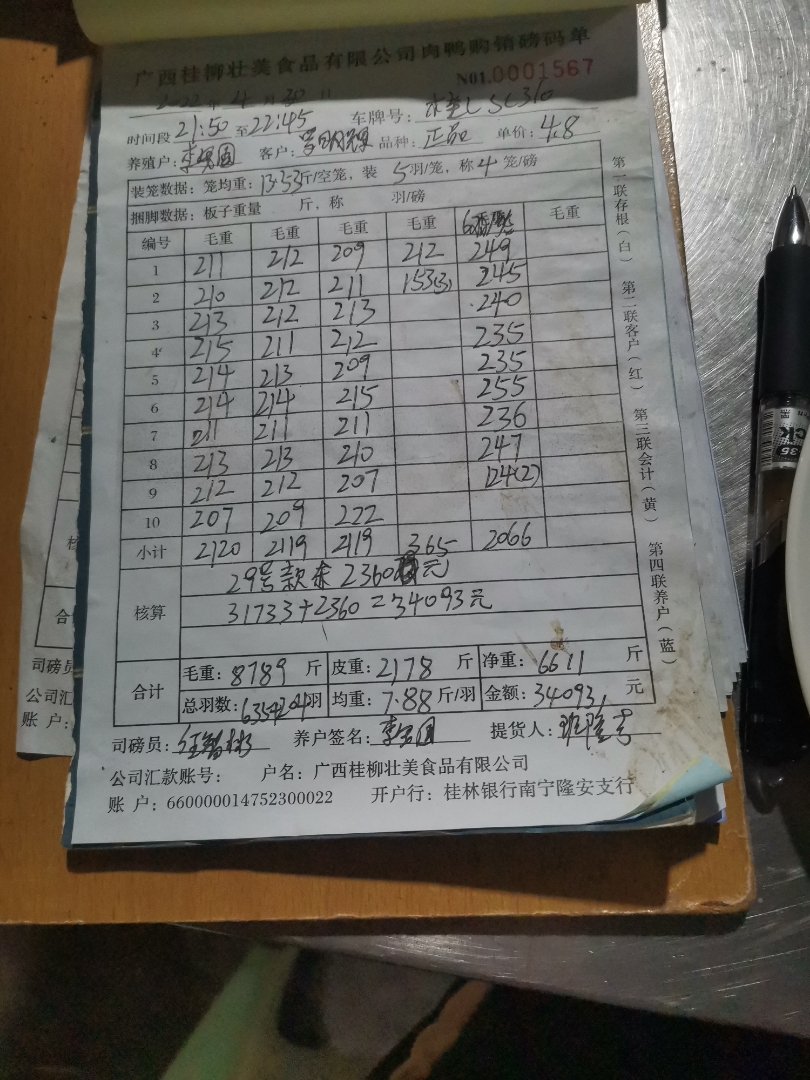 广西桂柳壮美食品有限公司肉鸭购销磅码单
N01.0001567
2022年4月30日 车牌号:
时间段 21:50 至 22:45 品种: 正品 单价: 4.8
养殖户: 客户:
装笼数据: 笼均重: 13.33斤/空笼, 装 5羽/笼, 称 4 笼/磅
捆脚数据: 板子重量 斤, 称 羽/磅
编号 毛重 毛重 毛重 毛重 毛重
1 211 212 209 212 249
2 210 212 211 153(3) 245
3 213 212 213 240
4 215 211 212 235
5 214 213 209 235
6 214 214 215 255
7 211 211 211 236
8 213 213 210 247
9 212 212 207 124(2)
10 207 209 222
小计 2120 2119 2119 365 2066
核算 29号款未 2360元
31733+2360=34093元
合计 毛重: 8789 斤 皮重: 2178 斤 净重: 6611 斤
总羽数: 635+204羽 均重: 7.88斤/羽 金额: 34093 元
司磅员: 养户签名: 提货人:
公司汇款账号: 户名: 广西桂柳壮美食品有限公司
账 户: 660000014752300022 开户行: 桂林银行南宁隆安支行
第一联存根(白) 第二联客户(红) 第三联会计(黄) 第四联养户(蓝)
合计
司磅员
公司汇
账 户: